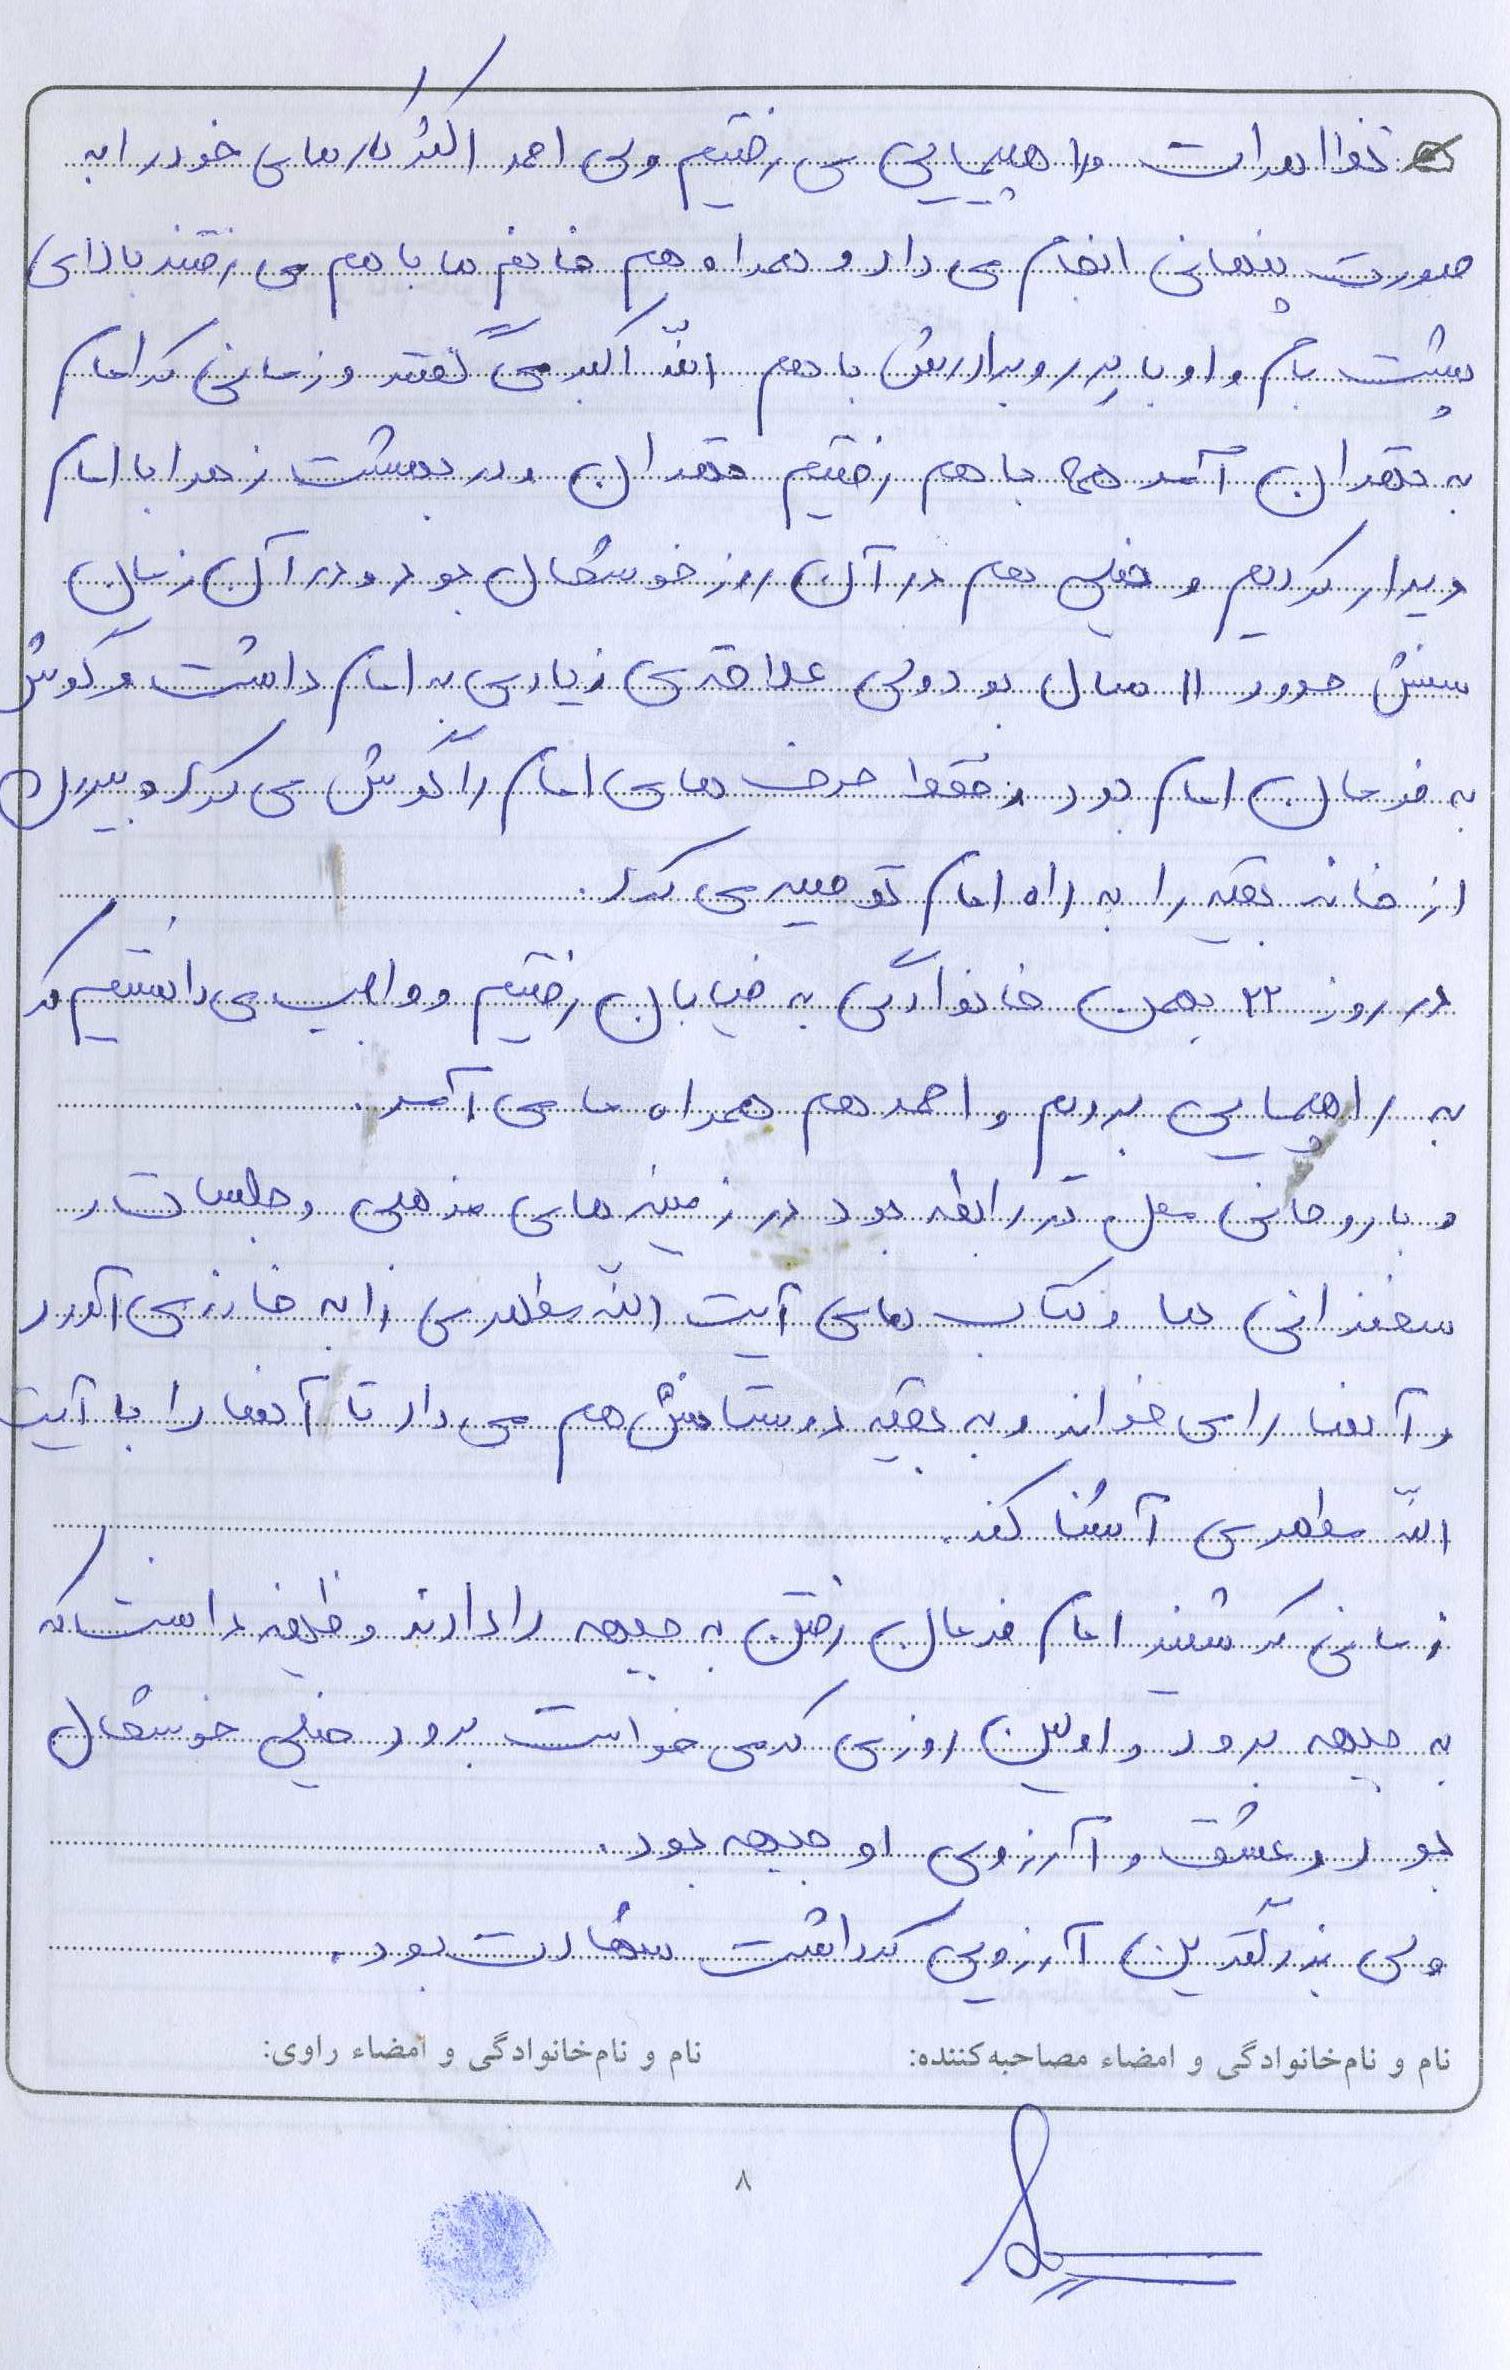 تظاهرات و راهپیمایی می رفتیم ولی احمد اکثر کارهای خود را به
صورت پنهانی انجام می داد و همراه هم خانم ها با هم می رفتند بالای
پشت بام و او با پدر و برادرش با هم الله اکبر می گفتند و زمانی که امام
به تهران آمد همه با هم رفتیم تهران و در بهشت زهرا با امام
دیدار کردیم و خیلی هم در آن روز خوشحال بود و در آن زمان
سنش حدود ۱۱ سال بود ولی علاقه ی زیادی به امام داشت و گوش
به فرمان امام بود و فقط حرف های امام را گوش می کرد و بیرون
از خانه بقیه را به راه امام توصیه می کرد.
در روز ۲۲ بهمن خانوادگی به خیابان رفتیم و واجب می دانستیم که
به راهپیمایی برویم و احمد هم همراه ما می آمد.
و با روحانی محل در رابطه بود در زمینه های مذهبی و جلسات و
سخنرانی ها و کتاب های آیت الله مطهری را به خانه می آورد
و آنها را می خواند و به بقیه دوستانش هم می داد تا آنها را با آیت
الله مطهری آشنا کند.
زمانی که شنید امام فرمان رفتن به جبهه را دادند وظیفه دانست که
به جبهه برود و اولین روزی که می خواست برود خیلی خوشحال
بود و عشق و آرزوی او جبهه بود.
ولی بزرگترین آرزویی که داشت شهادت بود.
نام و نام‌خانوادگی و امضاء مصاحبه‌کننده: نام و نام‌خانوادگی و امضاء راوی:
۸